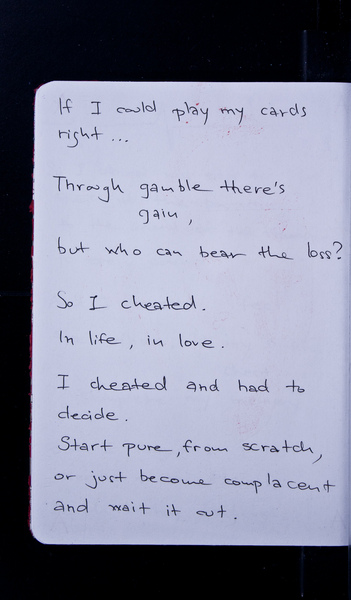 If I could play my cards
right ...
Through gamble there's
gain,
but who can bear the loss?
So I cheated.
In life, in love.
I cheated and had to
decide.
Start pure, from scratch,
or just become complacent
and wait it out.